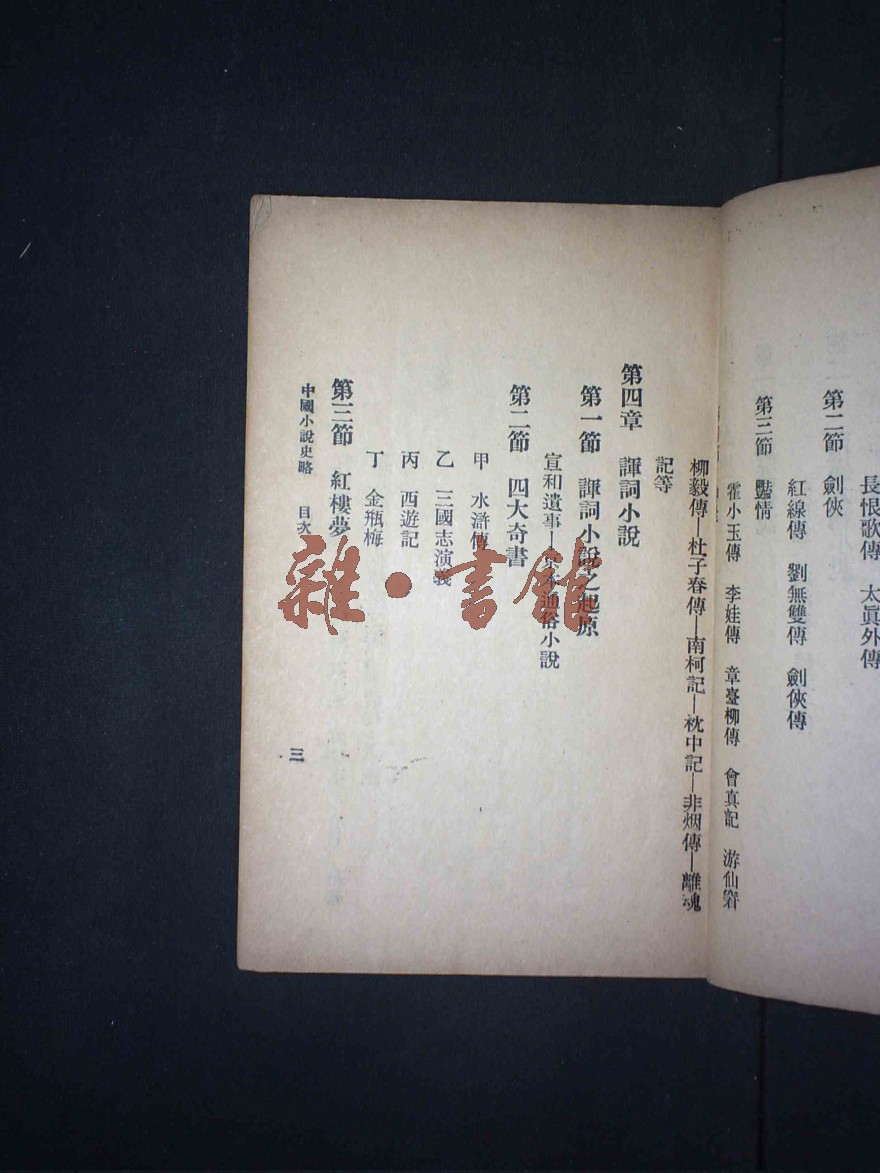 長恨歌傳　太眞外傳
第二節　劍俠
紅線傳　劉無雙傳　劍俠傳
第三節　豔情
霍小玉傳　李娃傳　章臺柳傳　會真記　游仙窟
柳毅傳—杜子春傳—南柯記—枕中記—非烟傳—離魂
記等
第四章　諢詞小說
第一節　諢詞小說之起原
宣和遺事—京本通俗小說
第二節　四大奇書
甲　水滸傳
乙　三國志演義
丙　西遊記
丁　金瓶梅
第三節　紅樓夢
中國小說史略　目次
三
雜·書館